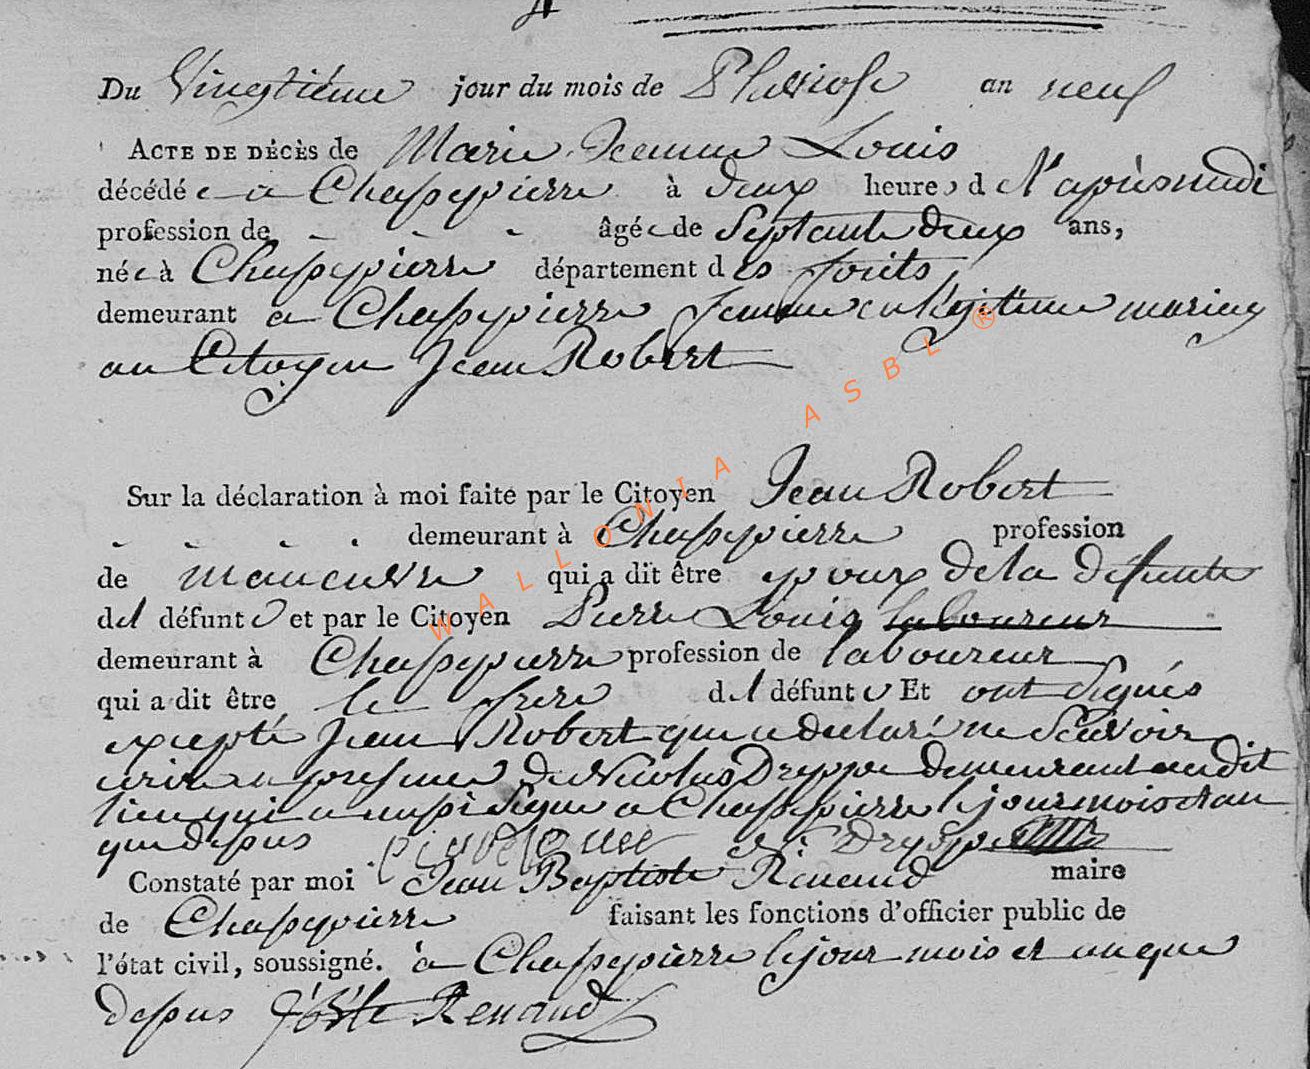 Du Vingtième jour du mois de Pluviose an neuf
Acte de décès de Marie Jeanne Louis
décédé e a Chassepierre à deux heures de l'aprèsmidi
profession de - - - âgée de Septante deux ans,
née à Chassepierre département des forêts
demeurant a Chassepierre femme en legitime mariag
au Citoyen Jean Robert
Sur la déclaration à moi faite par le Citoyen Jean Robert
- - - . demeurant à Chassepierre profession
de manœuvre qui a dit être epoux de la defunte
de l défunte et par le Citoyen Pierre Louis laboureur
demeurant à Chassepierre profession de laboureur
qui a dit être le frere de l défunte Et ont Signés
excepté Jean Robert qui a declaré ne Scavoir
ecrire en presence de Nicolas Dreppe demeurant audit
lieu qui a aussi Signe a Chassepierre le jour mois et an
que dessus N Dreppe
Constaté par moi Jean Baptiste Renaud maire
de Chassepierre faisant les fonctions d'officier public de
l'état civil, soussigné. à Chassepierre le jour mois et an que
dessus J Bste Renaud
WALLONIA ASBL ®